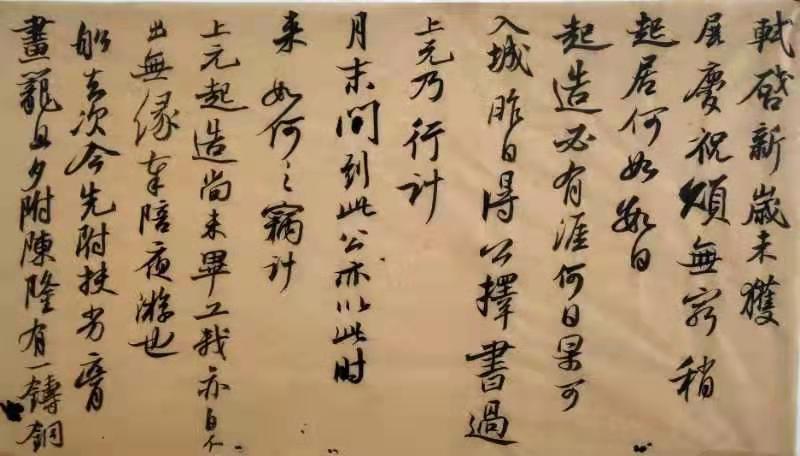 軾啓新歲未獲
展慶祝頌無窮稍
起居何如數日
起造必有涯何日果可
入城昨日得公擇書過
上元乃行計
月末間到此公亦以此时
来如何々竊計
上元起造尚未畢工軾亦自不
出無緣奉陪夜游也
船去次今先附扶劣膏
畫籠旦夕附陳隆有一鑄銅